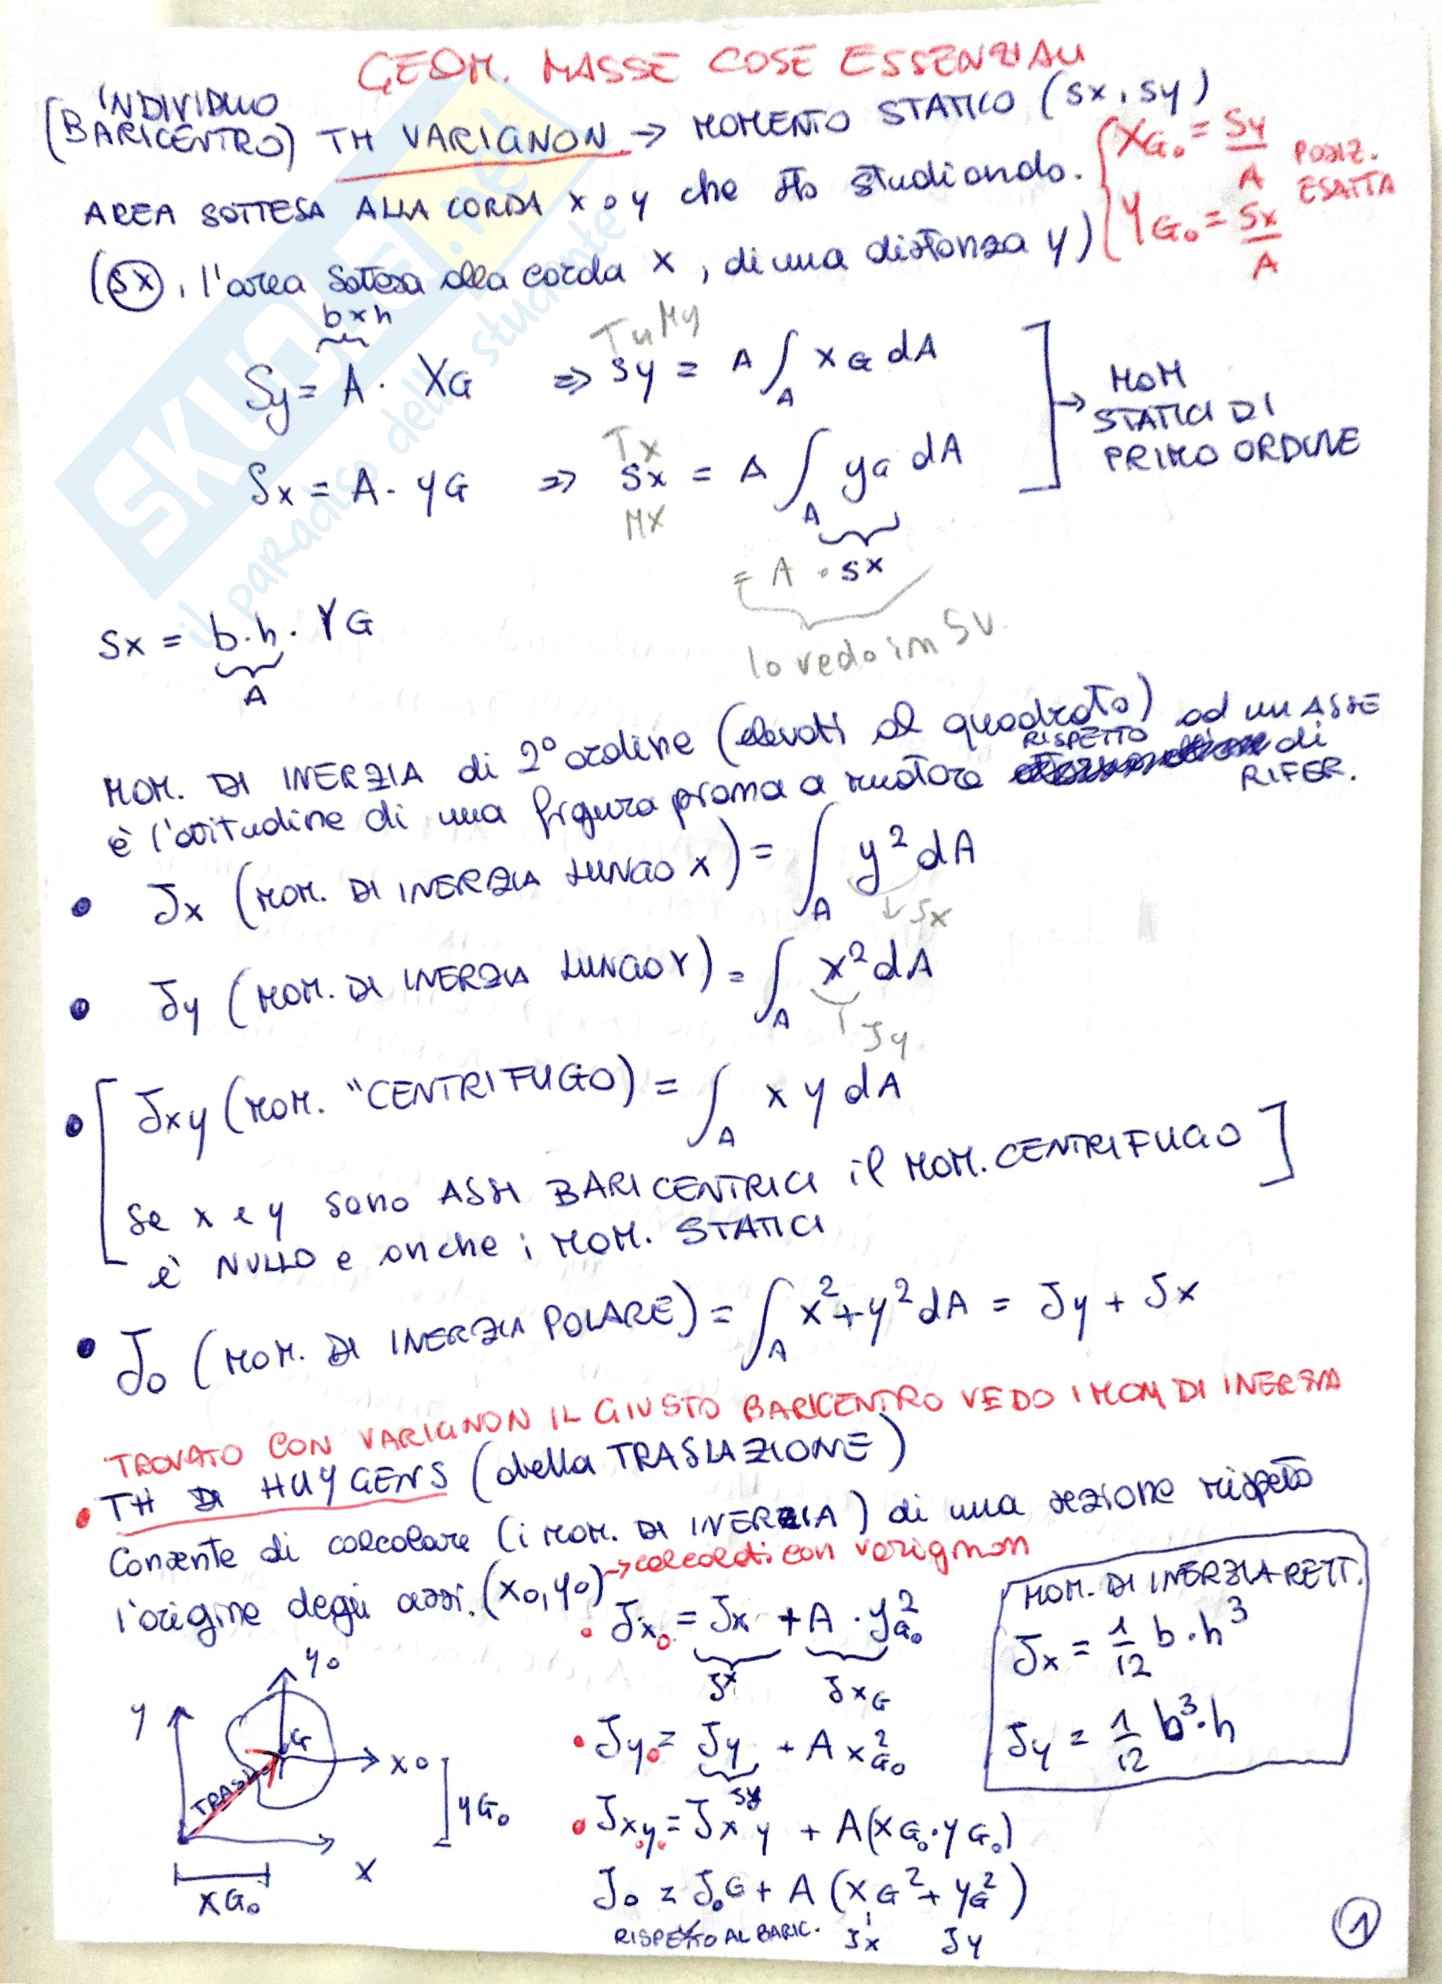 GEOM. MASSE COSE ESSENZIALI
INDIVIDUO
(BARICENTRO) TH VARIGNON → MOMENTO STATICO (Sx, Sy)
AREA SOTTESA ALLA CORDA x o y che sto studiando.
XG₀ = Sy/A POSIZ. ESATTA
YG₀ = Sx/A
(Sx, l'area sottesa alla corda x, di una distanza y)
b×h
Sy = A · XG ⇒ Sy = A ∫_A xG dA
Sx = A · yG ⇒ Sx = A ∫_A yG dA
Tx
MX
MOM STATICI DI PRIMO ORDINE
= A · Sx
lo vedo in SV.
Sx = b·h · YG
A
MOM. DI INERZIA di 2° ordine (elevati al quadrato)
è l'attitudine di una figura piana a ruotare RISPETTO ad un ASSE di RIFER.
• Jx (MOM. DI INERZIA LUNGO x) = ∫_A y² dA
↓ Sx
• Jy (MOM. DI INERZIA LUNGO Y) = ∫_A x² dA
Jy
• [Jxy (MOM. "CENTRIFUGO) = ∫_A x y dA
Se x e y sono ASSI BARICENTRICI il MOM. CENTRIFUGO
è NULLO e anche i MOM. STATICI]
• J₀ (MOM. DI INERZIA POLARE) = ∫_A x²+y² dA = Jy + Jx
TROVATO CON VARIGNON IL GIUSTO BARICENTRO VEDO I MOM DI INERZIA
• TH DI HUYGENS (della TRASLAZIONE)
Consente di calcolare (i MOM. DI INERZIA) di una sezione rispetto
l'origine degli assi. (x₀, y₀) → calcolati con varignon
• Jx₀ = Jx + A · yG₀²
Jx JxG
• Jy₀ = Jy + A xG₀²
Sy
• Jxy₀ = Jxy + A(xG₀·yG₀)
J₀ = J₀G + A (xG² + yG²)
RISPETTO AL BARIC. Jx Jy
MOM. DI INERZIA RETT.
Jx = 1/12 b·h³
Jy = 1/12 b³·h
y
y₀
G
x₀
TRASL
yG₀
x
xG₀
1
SKUOLA.net
il paradiso dello studente